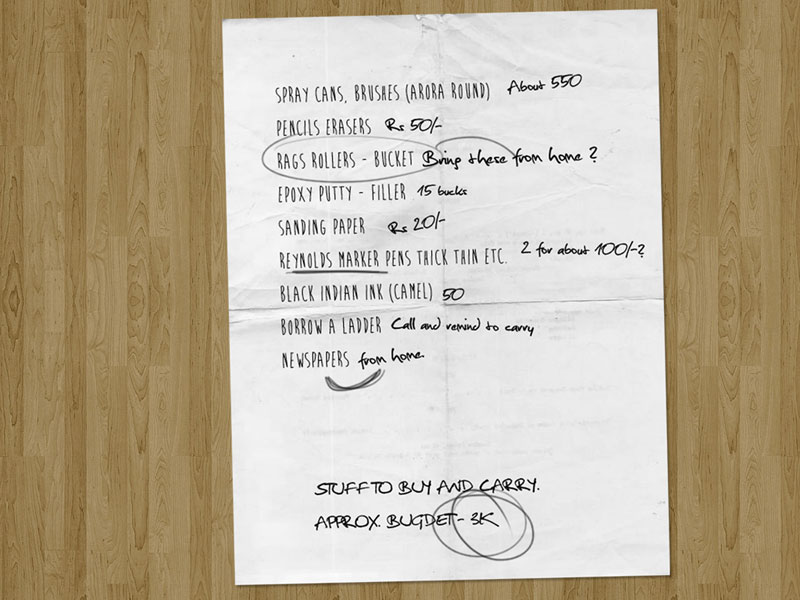 SPRAY CANS, BRUSHES (ARORA ROUND) About 550
PENCILS ERASERS Rs 50/-
RAGS ROLLERS - BUCKET Bring these from home ?
EPOXY PUTTY - FILLER 15 bucks
SANDING PAPER Rs 20/-
REYNOLDS MARKER PENS THICK THIN ETC. 2 for about 100/-?
BLACK INDIAN INK (CAMEL) 50
BORROW A LADDER Call and remind to carry
NEWSPAPERS from home.
STUFF TO BUY AND CARRY.
APPROX. BUGDET - 3K